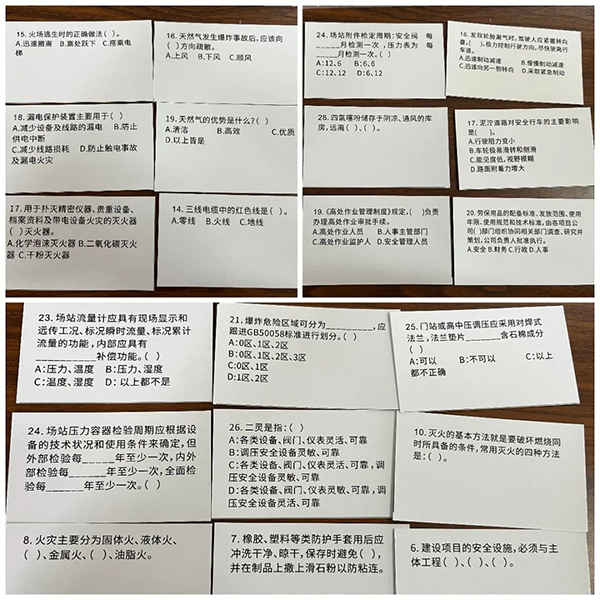 15. 火场逃生时的正确做法（ ）。
A.迅速撤离 B.高处跃下 C.搭乘电
梯
16. 天然气发生爆炸事故后,应该向
（ ）方向疏散。
A.上风 B.下风 C.顺风
18. 漏电保护装置主要用于（ ）
A.减少设备及线路的漏电 B.防止
供电中断
C.减少线路损耗 D.防止触电事故
及漏电火灾
19. 天然气的优势是什么?（ ）
A.清洁 B.高效 C.优质
D.以上皆是
17. 用于扑灭精密仪器、贵重设备、
档案资料及带电设备火灾的灭火器
（ ）灭火器。
A.化学泡沫灭火器 B.二氧化碳灭火
器 C.干粉灭火器
14. 三线电缆中的红色线是（ ）。
A.零线 B.火线 C.地线
24. 场站附件检定周期:安全阀 每
______月检测一次 ，压力表为 每
______月检测一次。（ ）
A:12、6 B:6、6
C:12、12 D:6、12
16. 发现轮胎漏气时,驾驶人应紧握转向
盘,（ ）,极力控制行驶方向,尽快驶离行
车道。
A.迅速制动减速 B.慢慢制动减速
C.迅速向另一侧转向 D.采取紧急制动
28. 四氢噻吩储存于阴凉、通风的库
房,远离（ ）、（ ）。
17. 泥泞道路对安全行车的主要影响
是（ ）。
A.行驶阻力变小
B.车轮极易滑转和侧滑
C.能见度低,视野模糊
D.路面附着力增大
19.《高处作业管理制度》规定,（ ）负责
办理高处作业审批手续。
A.高处作业人员 B.人事主管部门
C.高处作业监护人 D.安全管理人员
20. 劳保用品的配备标准、发放范围、使用
年限、使用规范和技术标准,由各项目公
司（ ）部门组织协同相关部门调查、研究并
策划,公司负责人批准执行。
A.安全 B.财务 C.行政 D.人事
23. 场站流量计应具有现场显示和
远传工况、标况瞬时流量、标况累计
流量的功能，内部应具有
__________补偿功能。（ ）
A:压力、温度 B:压力、湿度
C:温度、湿度 D: 以上都不是
21. 爆炸危险区域可分为________,应
跟进GB50058标准进行划分。（ ）
A:0区、1区、2区
B:0区、1区、2区、3区
C:0区、1区
D:1区、2区
25. 门站或高中压调压应采用对焊式
法兰，法兰垫片______含石棉成分
（ ）
A:可以 B:不可以 C:以上
都不正确
24. 场站压力容器检验周期应根据设
备的技术状况和使用条件来确定,但
外部检验每_____年至少一次,内外
部检验每_____年至少一次,全面检
验每______年至少一次。（ ）
26. 二灵是指:（ ）
A:各类设备、阀门、仪表灵活、可靠
B:调压安全设备灵敏、可靠
C:各类设备、阀门、仪表灵活、可靠,调
压安全设备灵敏、可靠
D:各类设备、阀门、仪表灵敏、可靠,调
压安全设备灵活、可靠
10. 灭火的基本方法就是要破坏燃烧同
时所具备的条件，常用灭火的四种方法
是:（ ）。
8. 火灾主要分为固体火、液体火、
（ ）、金属火、（ ）、油脂火。
7. 橡胶、塑料等类防护手套用后应
冲洗干净、晾干,保存时避免（ ）,
并在制品上撒上滑石粉以防粘连。
6. 建设项目的安全设施,必须与主
体工程（ ）、（ ）、（ ）。